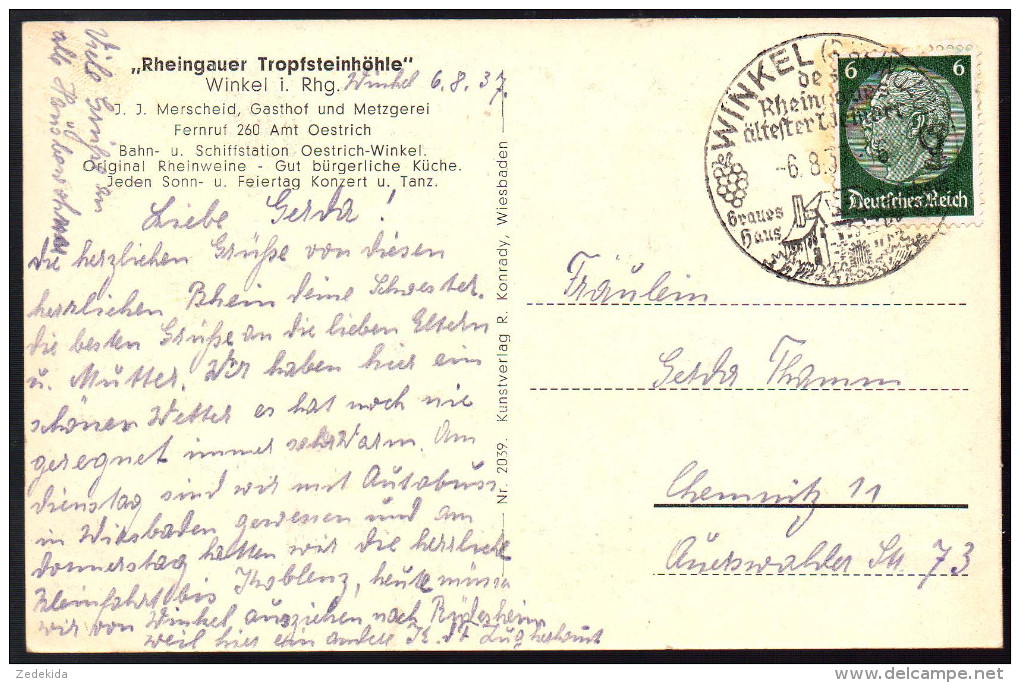 „Rheingauer Tropfsteinhöhle"
Winkel i. Rhg. Winkel 6.8.37.
J. J. Merscheid, Gasthof und Metzgerei
Fernruf 260 Amt Oestrich
Bahn- u. Schiffstation Oestrich-Winkel.
Original Rheinweine - Gut bürgerliche Küche.
Jeden Sonn- u. Feiertag Konzert u. Tanz.
Viele Grüße an
alle Hausbewohner
Liebe Gerda!
die herzlichen Grüße von diesen
herrlichen Rhein deine Schwester.
die besten Grüße an die lieben Eltern
u. Mutter. Wir haben hier ein
schönen Wetter es hat noch nie
geregnet immer sehr Warm. Am
dienstag sind wir mit Autobuss
in Wiesbaden gewessen und am
donnerstag hatten wir die herrliche
Rheinfahrt bis Koblenz, heute müssen
wir von Winkel ausziehen nach Rüdesheim
weil hier ein andere
Nr. 2039. Kunstverlag R. Konrady, Wiesbaden
WINKEL
des
Rheingaues
ältester Weinort
-6.8.3
Graues
Haus
6 6
Deutsches Reich
Fräulein
Gerda Thamm
Chemnitz 11
Auerswalder Str. 73
Zedekida
delcampe.net